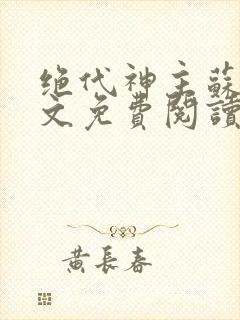 绝代神主蘇
文免費閱讀
黄長春